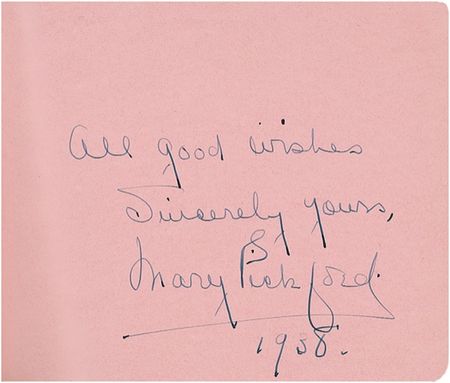 All good wishes
Sincerely yours,
Mary Pickford.
1938.